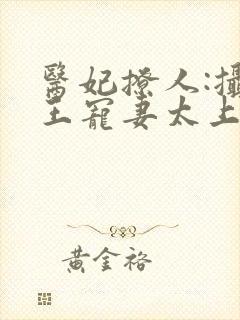 醫妃撩人:攝
王寵妻太上
黃金裕